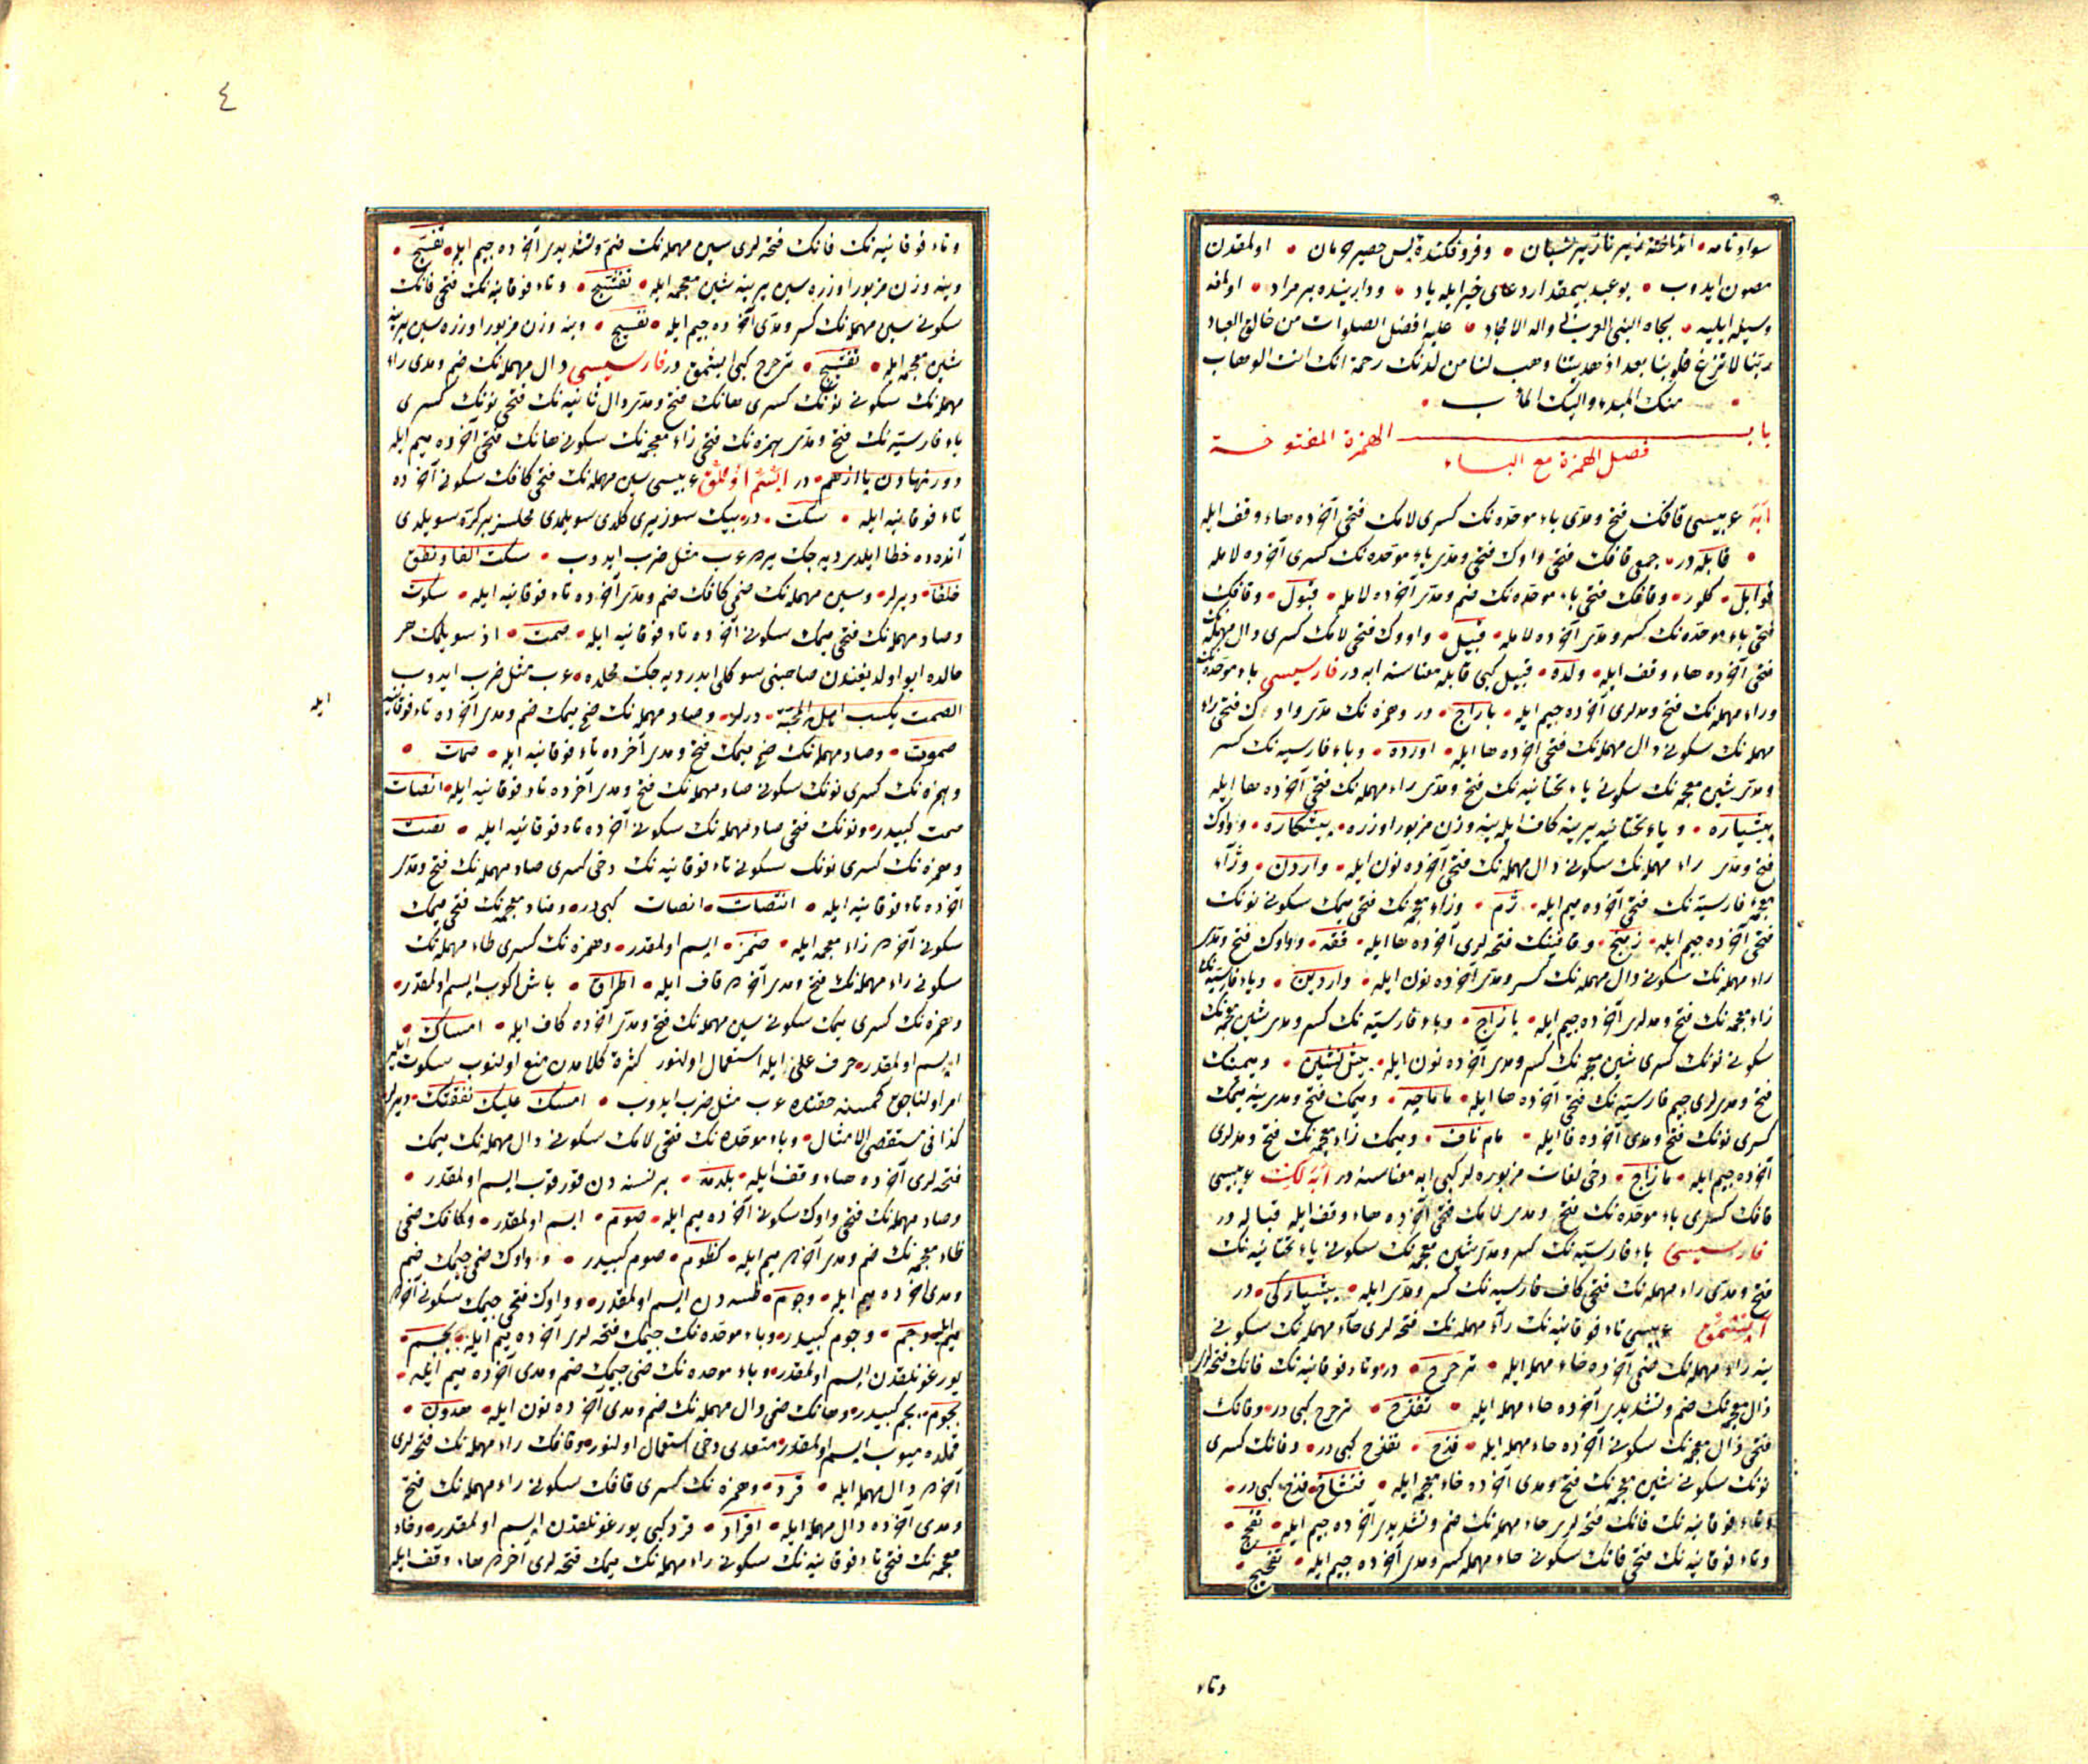 سواد نامه • انداخته زیر • و فروفکنده پس حصیر حرمان • اولمقدن
مصون ایدوب • بو عبد بیمقدار دعای خیر ایله یاد • و دارینده بر مراد • اولمغه
وسیله ایلیه • بجاه النبی العربی واله الامجاد • علیه افضل الصلوات من خالق العباد
ربنا لا تزغ قلوبنا بعد اذ هدیتنا وهب لنا من لدنک رحمة انک انت الوهاب
• منک المبدء والیک المآب •
باب الهمزة المفتوحة
فصل الهمزة مع الباء
ابه عربیسی قافک فتح و مدی باء موحده نک کسری لامک فتحی آخرده هاء وقف ایله
• قابله در • جمعی قافک فتحی واوک فتحی و مدی باء موحده نک کسری آخرده لام ایله
قوابل • کلور • و قافک فتحی باء موحده نک ضم و مدی آخرده لام ایله • قبول • و قافک
فتحی باء موحده نک کسر و مدی آخرده لام ایله • قبیل • و اووک فتحی لامک کسری دال مهمله نک
فتحی آخرده هاء وقف ایله • ولده • قبیل کبی قابله معناسنه ابه در فارسیسی باء موحده نک
و راء مهمله نک فتح و مدلری آخرده جیم ایله • باراج • در و همزه نک مدی واوک فتحی راء
مهمله نک سکونی دال مهمله نک فتحی آخرده ها ایله • آورده • و باء فارسیه نک کسر
و مدی شین معجمه نک سکونی یاء تحتانیه نک فتح و مدی راء مهمله نک فتحی آخرده ها ایله
پیشیاره • و یاء تحتانیه یرینه کاف ایله ینه وزن مزبور اوزره • پیشکاره • و واوک
فتح و مدی راء مهمله نک سکونی دال مهمله نک فتحی آخرده نون ایله • واردن • و زاء
معجمه فارسیه نک فتحی آخرده میم ایله • ژم • و زاء معجمه نک فتحی میمک سکونی نونک
فتحی آخرده جیم ایله • زمنج • و قافینک فتحه لری آخرده ها ایله • ققه • و واوک فتح و مدی
راء مهمله نک سکونی دال مهمله نک کسر و مدی آخرده نون ایله • واردین • و باء فارسیه نک
زاء معجمه نک فتح و مدلری آخرده جیم ایله • پازاج • و باء فارسیه نک کسر و مدی شین معجمه نک
سکونی نونک کسری شین معجمه نک کسر و مدی آخرده نون ایله • پیش نشین • و میمینک
فتح و مدلری جیم فارسیه نک فتحی آخرده ها ایله • ماماچه • و میمک فتح و مدی ینه میمک
کسری نونک فتح و مدی آخرده فا ایله • مام ناف • و میمک زاء معجمه نک فتح و مدلری
آخرده جیم ایله • مازاج • دخی لغات مزبوره لر کبی ابه معناسنه در ابه لک عربیسی
قافک کسری باء موحده نک فتح و مدی لامک فتحی آخرده هاء وقف ایله قباله در
فارسیسی باء فارسیه نک کسر و مدی شین معجمه نک سکونی یاء تحتانیه نک
فتح و مدی راء مهمله نک فتحی کاف فارسیه نک کسر و مدی ایله • پیشیارگی • در
عربیسی تاء فوقانیه نک راء مهمله نک فتحه لری حاء مهمله نک سکونی
ینه راء مهمله نک ضمی آخرده حاء مهمله ایله • ترحرح • در و تاء فوقانیه نک فانک فتحه لری
ذال معجمه نک ضم و تشدیدی آخرده حاء مهمله ایله • تفذح • ترحرح کبی در • و فانک
فتحی ذال معجمه نک سکونی آخرده حاء مهمله ایله • فذح • تفذح کبی در • و فانک کسری
نونک سکونی شین معجمه نک فتح و مدی آخرده خاء معجمه ایله • فنشاخ • فذح کبی در •
و تاء فوقانیه نک فانک فتحه لری حاء مهمله نک ضم و تشدیدی آخرده جیم ایله • تفحج •
و تاء فوقانیه نک فتحی فانک سکونی حاء مهمله کسر و مدی آخرده جیم ایله • تفحیج •
وتاء
٤
و تاء فوقانیه نک فانک فتحه لری سین مهمله نک ضم و تشدیدی آخرده جیم ایله • تفسج •
و ینه وزن مزبور اوزره سین یرینه شین معجمه ایله • تفشج • و تاء فوقانیه نک فتحی فانک
سکونی سین مهمله نک کسر و مدی آخرده جیم ایله • تفسیج • و ینه وزن مزبور اوزره سین یرینه
شین معجمه ایله • تفشیج • ترحرح کبی ابشمق در فارسیسی دال مهمله نک ضم و مدی راء
مهمله نک سکونی نونک کسری هانک فتح و مدی دال ثانیه نک فتحی نونک کسری
باء فارسیه نک فتح و مدی همزه نک فتحی زاء معجمه نک سکونی هانک فتحی آخرده میم ایله
دور نهادن پا از هم • در ابسم اولمق عربیسی سین مهمله نک فتحی کافک سکونی آخرده
تاء فوقانیه ایله • سکت • در بیک سوز یری کلدی سویلمدی محلسز بر کره سویلدی
آنده ده خطا ایلدی دیه جک یرده عرب مثل ضرب ایدوب • سکت الفا و نطق
خلفا • دیرلر • و سین مهمله نک ضمی کافک ضم و مدی آخرده تاء فوقانیه ایله • سکوت
و صاد مهمله نک فتحی میمک سکونی آخرده تاء فوقانیه ایله • صمت • از سویلمک هر
حالده ایو اولدیغندن صاحبنی سوکلی ایدر دیه جک محلده • عرب مثل ضرب ایدوب
الصمت یکسب اهله المحبة • دیرلر • و صاد مهمله نک ضمی میمک ضم و مدی آخرده تاء فوقانیه
ایله
صموت • و صاد مهمله نک ضمی میمک فتح و مدی آخرده تاء فوقانیه ایله • صمات •
و همزه نک کسری نونک سکونی صاد مهمله نک فتح و مدی آخرده تاء فوقانیه ایله • انصات
صمت کبیدر • و نونک فتحی صاد مهمله نک سکونی آخرده تاء فوقانیه ایله • نصت
و همزه نک کسری نونک سکونی تاء فوقانیه نک دخی کسری صاد مهمله نک فتح و مدی
آخرده تاء فوقانیه ایله • انتصات • انصات کبی در • و ضاد معجمه نک فتحی میمک
سکونی آخرده زاء معجمه ایله • ضمز • ابسم اولمقدر • و همزه نک کسری طاء مهمله نک
سکونی راء مهمله نک فتح و مدی آخرده قاف ایله • اطراق • باش اکوب ابسم اولمقدر •
و همزه نک کسری میمک سکونی سین مهمله نک فتح و مدی آخرده کاف ایله • امساک •
ابسم اولمقدر • حرف علی ایله استعمال اولنور کثرة کلامدن منع اولنوب سکوت ایله
امر اولناجق کمسنه حقنده عرب مثل ضرب ایدوب • امسک علیک نفقتک • دیرلر
کذا فی مستقصی الامثال • و باء موحده نک فتحی لامک سکونی دال مهمله نک میمک
فتحه لری آخرده هاء وقف ایله • بلدمه • بر نسنه دن قورقوب ابسم اولمقدر •
و صاد مهمله نک فتحی واوک سکونی آخرده میم ایله • صوم • ابسم اولمقدر • و کافک ضمی
ظاء معجمه نک ضم و مدی آخرده میم ایله • کظوم • صوم کبیدر • و واوک ضمی جیمک ضم
و مدی آخرده میم ایله • وجوم • طسه دن ابسم اولمقدر • و واوک فتحی جیمک سکونی آخرده
میم ایله • وجم • وجوم کبیدر • و باء موحده نک جیمک فتحه لری آخرده میم ایله • بجم •
یورغونلقدن ابسم اولمقدر • و باء موحده نک ضمی جیمک ضم و مدی آخرده میم ایله •
بجوم • بجم کبیدر • و هانک ضمی دال مهمله نک ضم و مدی آخرده نون ایله • هدون •
ابسم اولمقدر • متعدی دخی استعمال اولنور • و قافک راء مهمله نک فتحه لری
آخرده دال مهمله ایله • قرد • و همزه نک کسری قافک سکونی راء مهمله نک فتح
و مدی آخرده دال مهمله ایله • اقراد • قرد کبی یورغونلقدن ابسم اولمقدر • و خاء
معجمه نک فتحی تاء فوقانیه نک سکونی راء مهمله نک میمک فتحه لری آخرده هاء وقف ایله